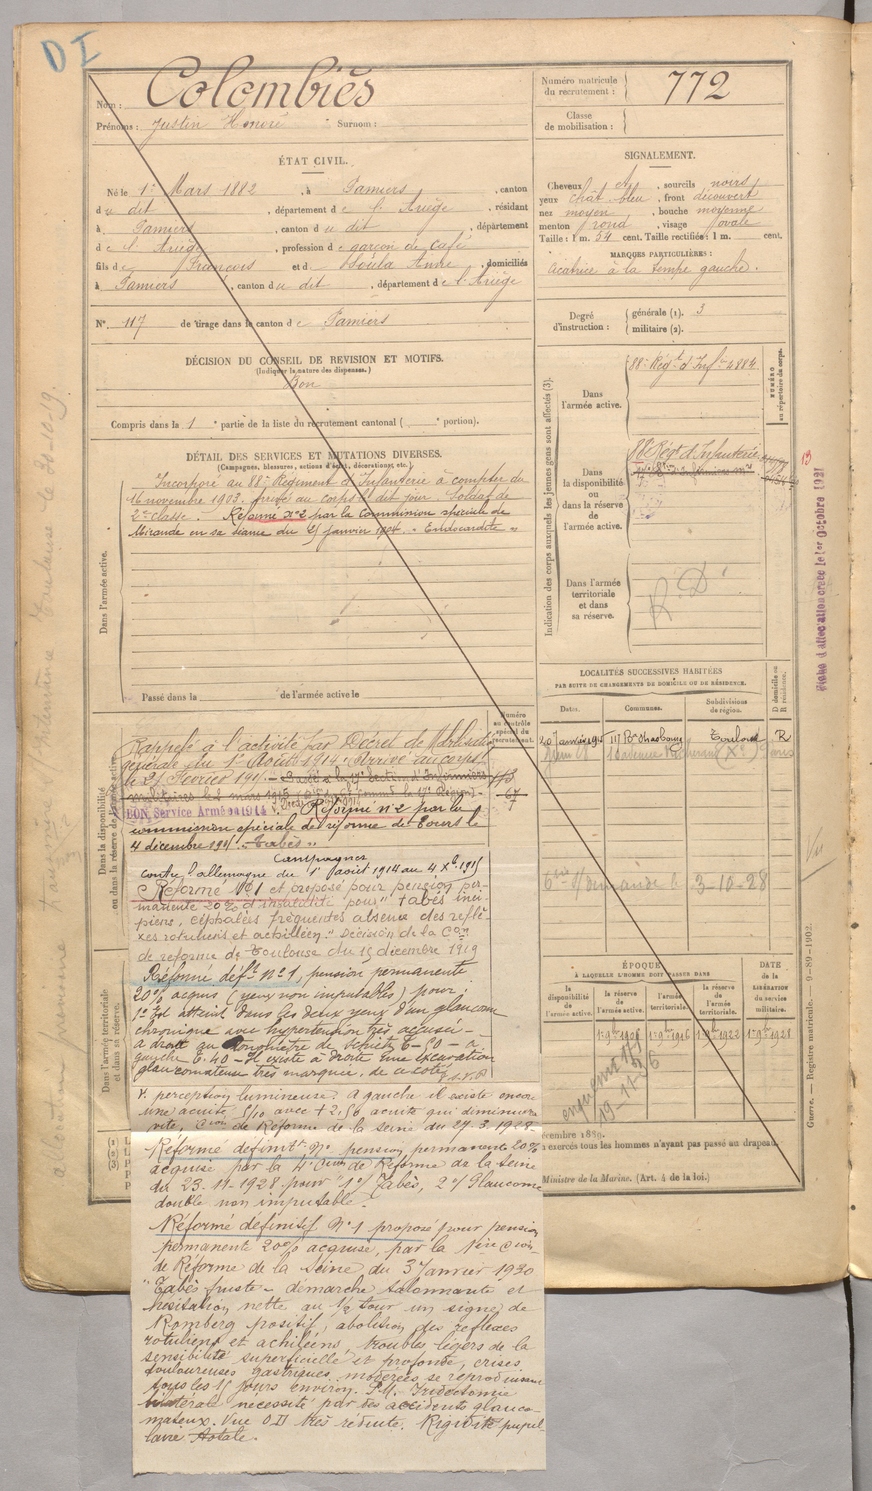 D I
Nom : Colombiès
Numéro matricule du recrutement : 772
Prénoms : Justin Honoré Surnom :
Classe de mobilisation :
ÉTAT CIVIL.
Né le 1er Mars 1882, à Pamiers, canton
du dit, département de l'Ariège, résidant
à Pamiers, canton du dit, département
de l'Ariège, profession de garçon de café
fils de François et de Soula Anne, domiciliés
à Pamiers, canton du dit, département de l'Ariège
N° 117 de tirage dans le canton de Pamiers
SIGNALEMENT.
Cheveux ch, sourcils noirs
yeux chât. bleu, front découvert
nez moyen, bouche moyenne
menton rond, visage ovale
Taille : 1 m. 54 cent. Taille rectifiée : 1 m. cent.
MARQUES PARTICULIÈRES :
cicatrice à la tempe gauche.
Degré d'instruction : générale (1). 3
militaire (2).
DÉCISION DU CONSEIL DE REVISION ET MOTIFS.
(Indiquer la nature des dispenses.)
Bon
Compris dans la 1e partie de la liste du recrutement cantonal ( e portion).
DÉTAIL DES SERVICES ET MUTATIONS DIVERSES.
(Campagnes, blessures, actions d'éclat, décorations, etc.)
Dans l'armée active.
Incorporé au 88e Régiment d'Infanterie à compter du
16 novembre 1903. arrivé au corps le dit jour. Soldat de
2e classe. Réformé n°2 par la Commission spéciale de
Mirande en sa séance du 21 janvier 1904. "Endocardite"
Passé dans la de l'armée active le
Indication des corps auxquels les jeunes gens sont affectés (3).
NUMÉRO au répertoire du corps.
Dans l'armée active.
88e Régt d'Infie 4884
Dans la disponibilité ou dans la réserve de l'armée active.
88e Régt d'Infanterie
Dans l'armée territoriale et dans sa réserve.
R. D
13
Fiche d'affectation créée le 1er Octobre 1921
LOCALITÉS SUCCESSIVES HABITÉES
PAR SUITE DE CHANGEMENTS DE DOMICILE OU DE RÉSIDENCE.
Dates. Communes. Subdivisions de région. D domicile ou R résidence.
20 Janvier 1915 117 Bd Strasbourg Toulouse R
Paris
demande le 3-10-28
ÉPOQUE
À LAQUELLE L'HOMME DOIT PASSER DANS
la disponibilité de l'armée active. la réserve de l'armée active. l'armée territoriale. la réserve de l'armée territoriale.
DATE de la LIBÉRATION du service militaire.
1er 9bre 1906 1er 9bre 1916 1er 9bre 1922 1er 9bre 1928
19-11-36
décembre 1889.
exercés tous les hommes n'ayant pas passé au drapeau
Ministre de la Marine. (Art. 4 de la loi.)
Guerre. — Registre matricule. — 9-89-1902.
Vu
Dans la disponibilité ou dans la réserve de l'armée active
Numéro au contrôle spécial du recrutement.
Rappelé à l'activité par Décret de Mobilisation
générale du 1er Août 1914. Arrivé au corps
le 21 Février 1915. - Passé à la 17e Section d'Infirmiers
militaires le 2 mars 1915
BON Service Armé en 1914 Réformé n°2 par la
commission spéciale de réforme de Tours le
4 décembre 1915. "Tabès"
Campagnes
contre l'allemagne du 1er aout 1914 au 4 Xbre 1915
Réformé N°1 et proposé pour pension per-
manente 20% d'invalidité "pour" tabès inci-
piens, céphalées fréquentes absence des réfle-
xes rotuliens et achilléen." Décision de la Con
de réforme de Toulouse du 15 décembre 1919
Réformé déft n°1, pension permanente
20% acquis (yeux non imputables) pour :
1° Est atteint dans les deux yeux d'un glaucome
chronique avec hypertension très accusée -
à droite au Tonomètre de Schiötz T=50 - à
gauche T: 40 - Il existe à droite une excavation
glaucomateuse très marquée, de ce coté T.S.V.P
Dans l'armée territoriale et dans sa réserve.
V. perception lumineuse. A gauche il existe encore
une acuité 5/10 avec + 2,50 acuité qui diminuera
vite, Con de Réforme de la Seine du 27.3.1928.
Réformé définitt N° pension permanente 20%
acquise par la 4e Con de Réforme de la Seine
du 23-11-1928 pour "1°) Tabès, 2°) Glaucome
double non imputable.
Réformé définitif N°1 proposé pour pension
permanente 20% acquise, par la 1ère Con
de Réforme de la Seine du 3 Janvier 1930
"Tabès fruste - démarche talonnante et
hésitation nette au 1/2 tour un signe de
Romberg positif, abolition des réflexes
rotuliens et achiléens, troubles légers de la
sensibilité superficielle et profonde, crises
douloureuses gastriques modérées se reproduisant
tous les 15 jours environ. P.M. Iridectomie
bilatérale nécessité par des accidents glauco-
mateux. Vue OD très réduite. Rigidité pupil-
laire totale.